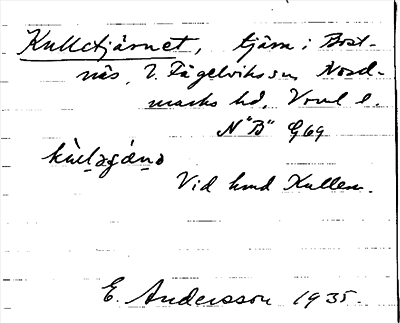 Kulletjärnet, tjärn i Bost-
näs, V. Fågelviks sn Nord-
marks hd, Vrml l.
N "B" G69
Vid hmd Kullen.
E. Andersson 1935.